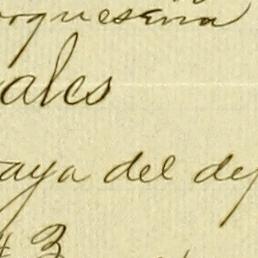 orquesena
ales
aya del de
# 3